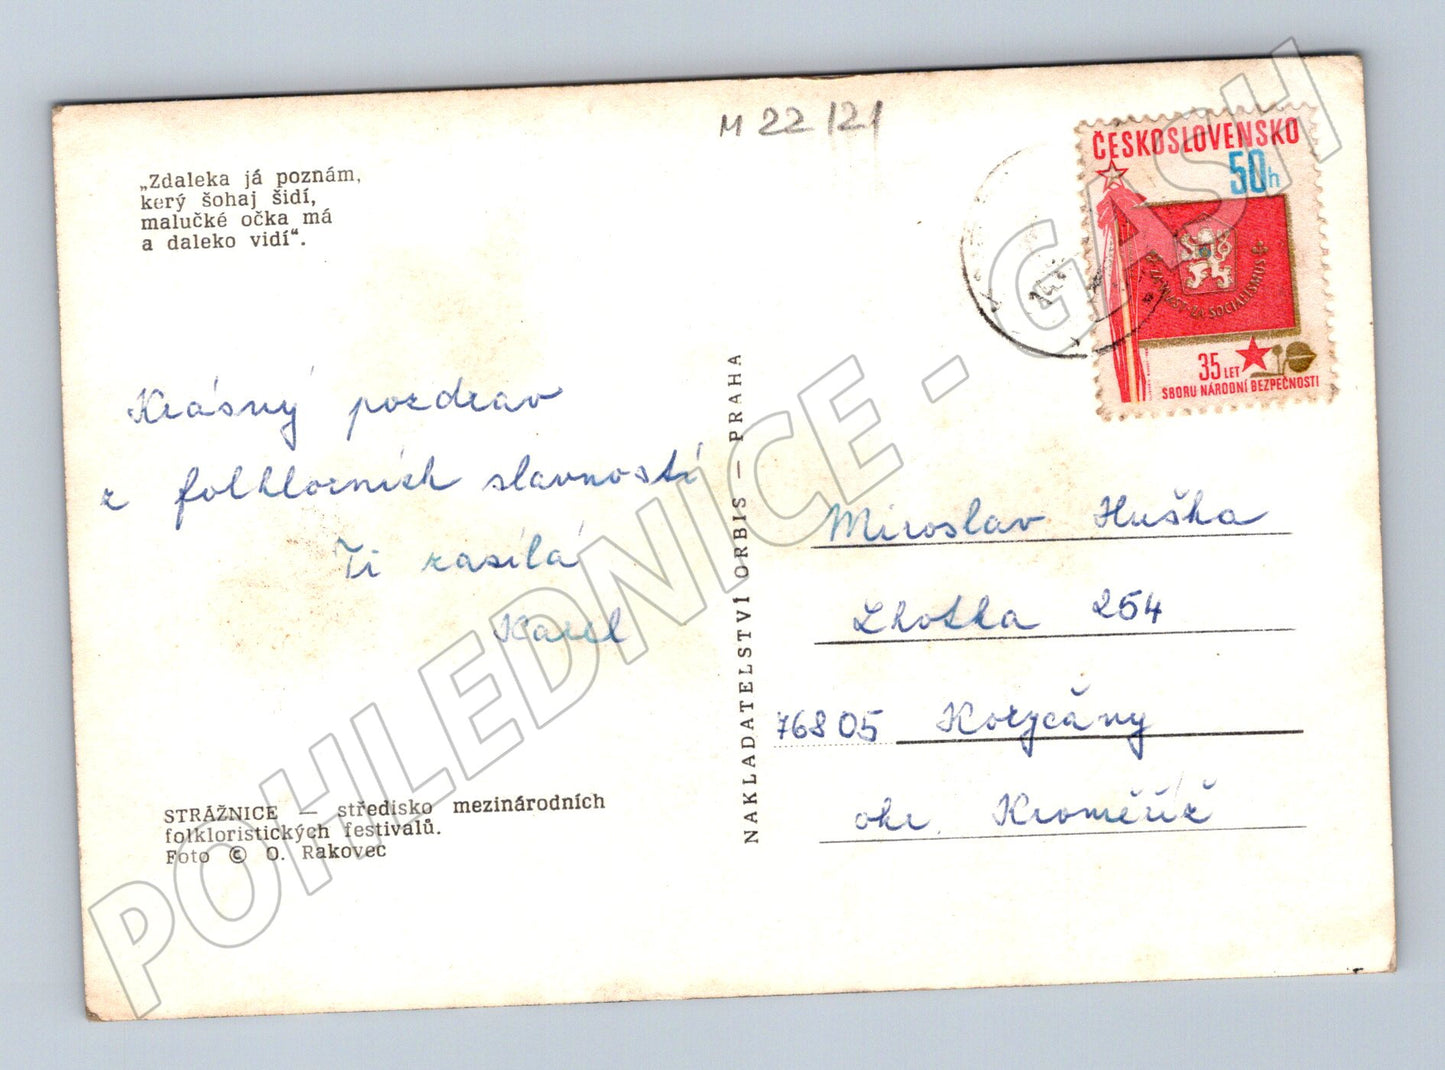 M 22/121
„Zdaleka já poznám,
kerý šohaj šidí,
malučké očka má
a daleko vidí“.
Krásný pozdrav
z folklorních slavností
Ti zasílá
Karel
STRÁŽNICE — středisko mezinárodních
folkloristických festivalů.
Foto © O. Rakovec
NAKLADATELSTVÍ ORBIS — PRAHA
ČESKOSLOVENSKO
50h
ZA SOCIALISMUS
35 LET
SBORU NÁRODNÍ BEZPEČNOSTI
Miroslav Huška
Lhotka 254
76805 Koryčany
okr. Kroměříž
POHLEDNICE - GASH